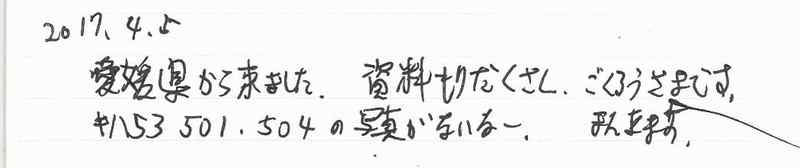 2017.4.5
愛媛県から来ました. 資料もりだくさん. ごくろうさまです.
キハ53 501.504の写真がないなー.